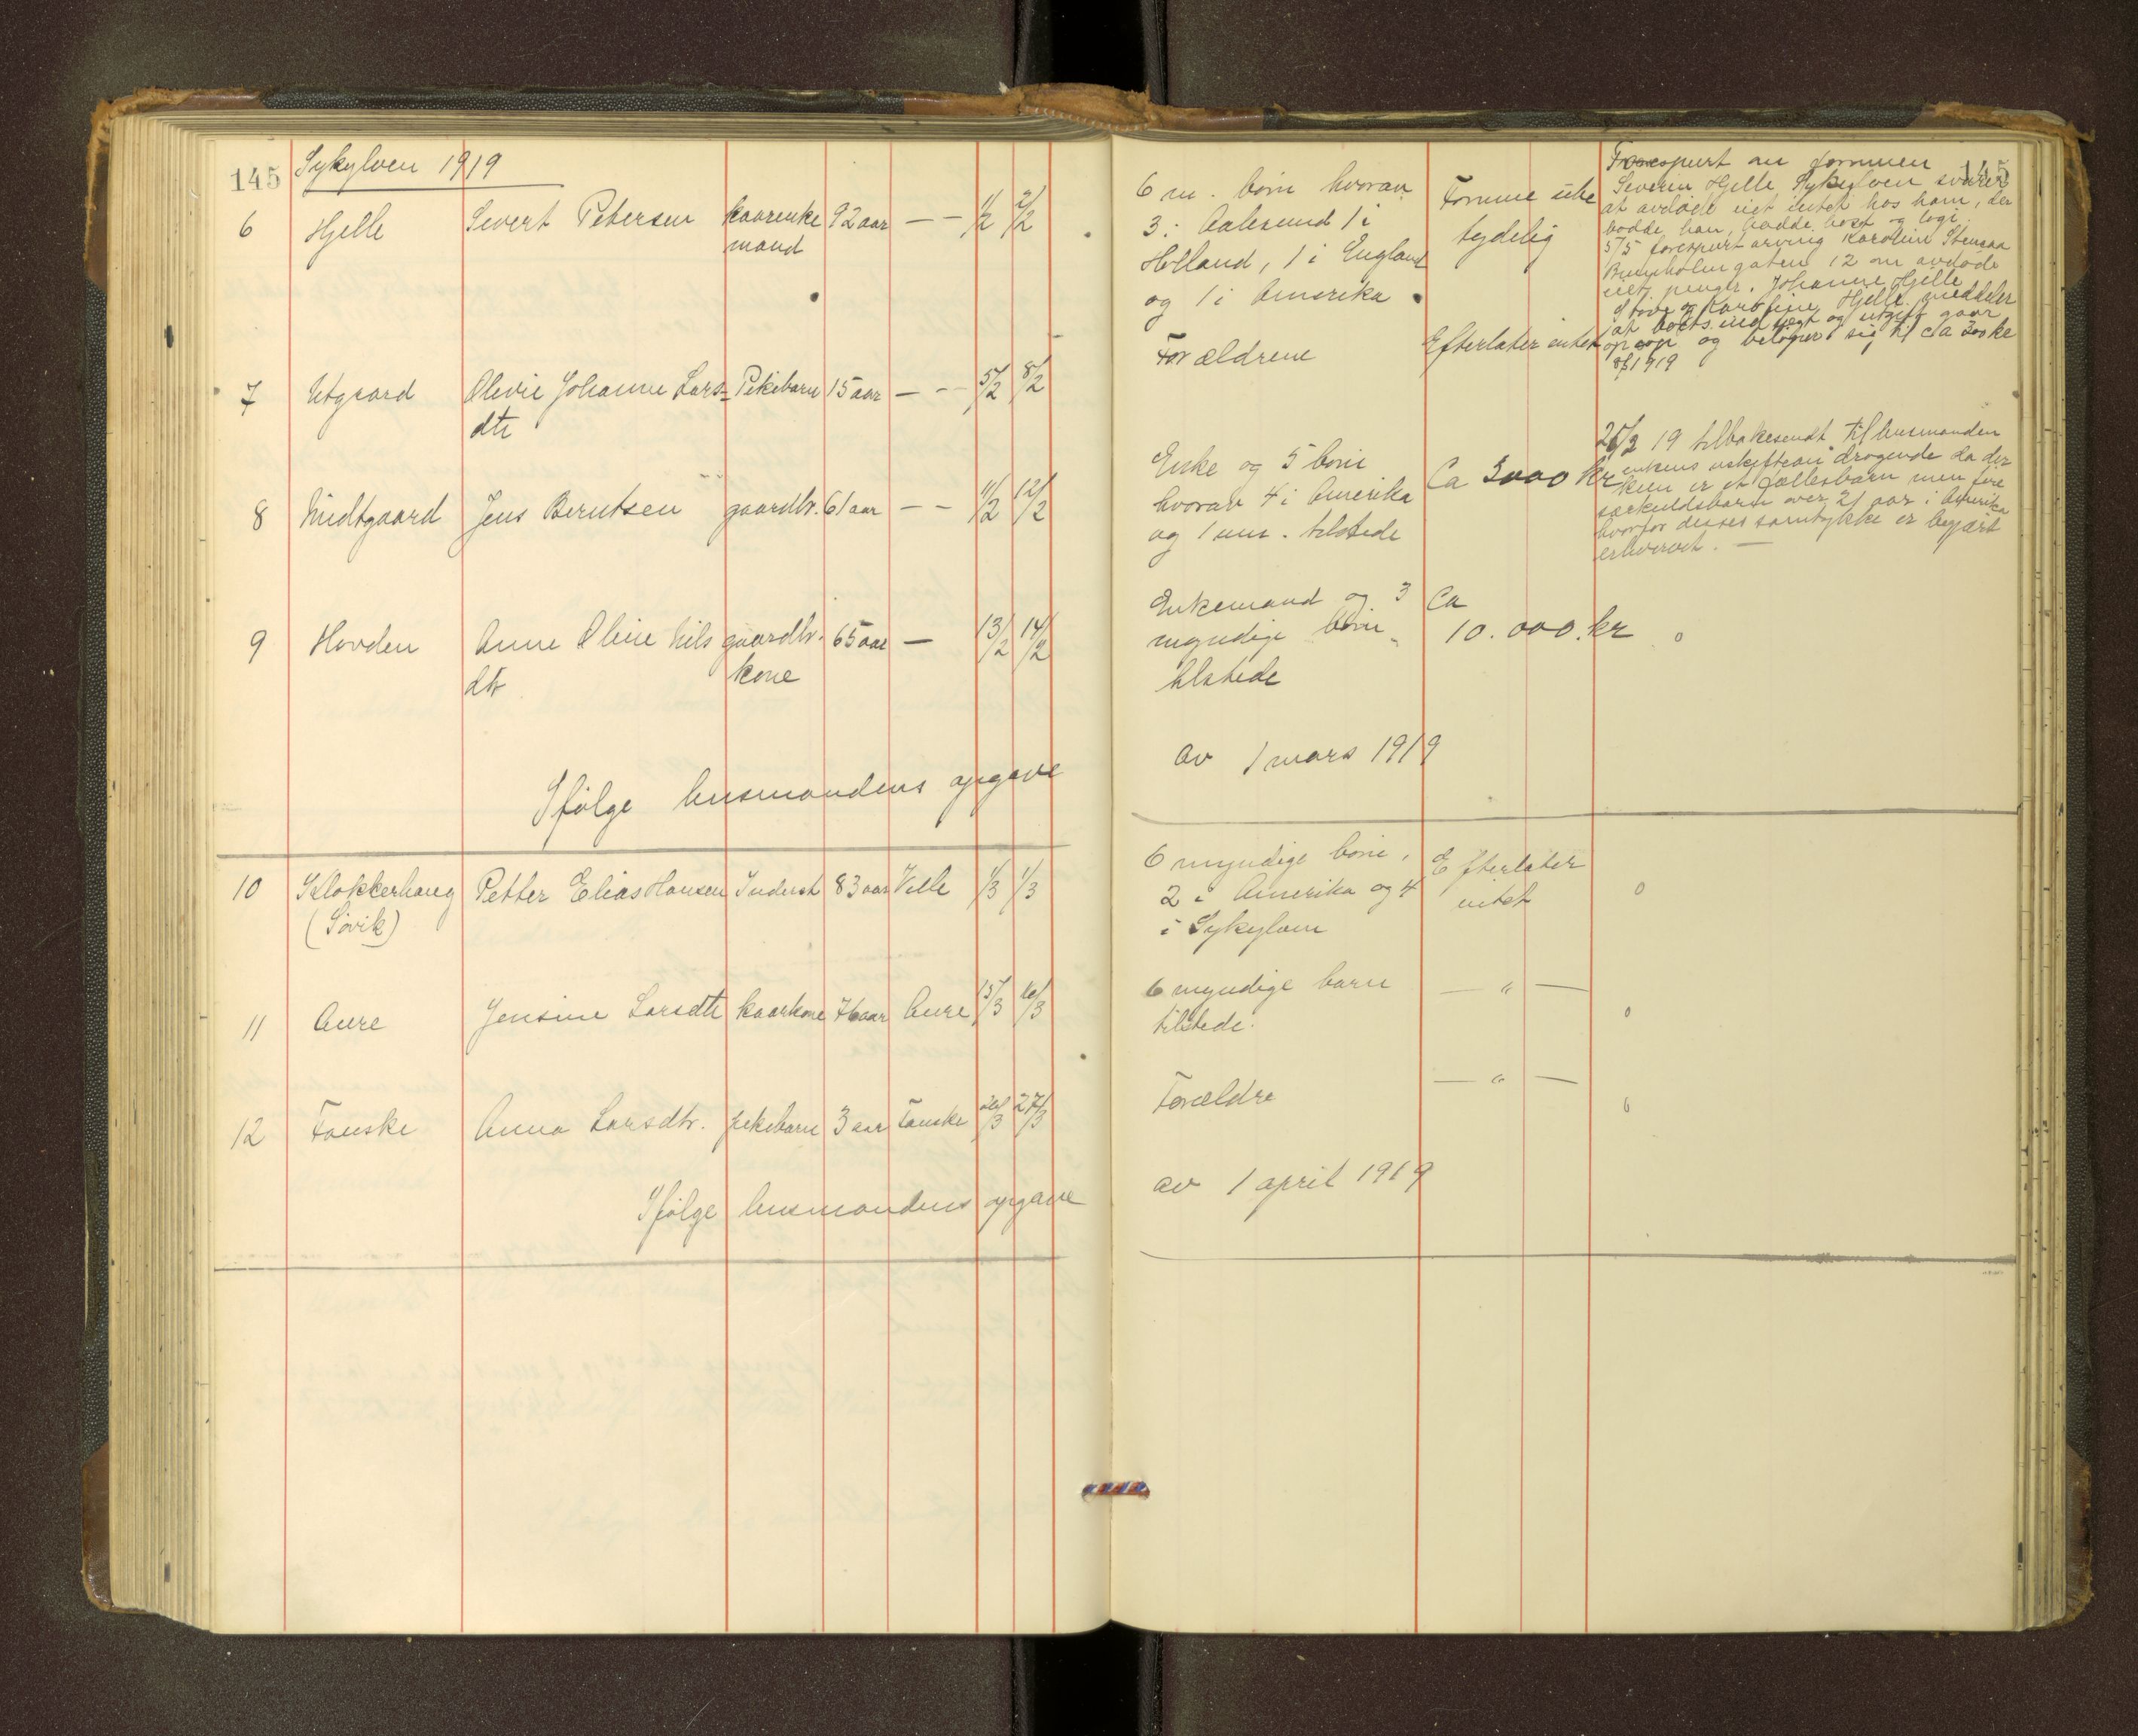 145 Sykylven 1919
6 Hjelle Sivert Petersen kaarenke 92 aar — — 1/2 2/2
mand
7 Utgaard Olivie Johanne Lars= Pikebarn 15 aar — — 5/2 8/2
dtr
8 Midtgaard Jens Berntsen gaardbr. 61 aar — — 11/2 12/2
9 Hovden Anne Oline Nils gaardbr. 65 aar — 13/2 14/2
dtr kone
Ifølge lensmandens opgave
10 Klokkerhaug Petter Elias Hansen Inderst 83 aar Velle 1/3 1/3
(Søvik)
11 Aure Jensine Larsdtr kaarkone 76 aar Aure 15/3 16/3
12 Fauske Anna Larsdtr. pikebarn 3 aar Fauske 26/3 27/3
Ifølge lensmandens opgave
145
6 m. børn hvorav
3 i Aalesund 1 i
Holland, 1 i England
og 1 i Amerika
Formue ikke
tydelig
Forespurt om formuen
Severin Hjelle, Sykylven svarer
at avdøde eiet intet hos ham, der
bodde han, hadde kost og logi.
5/5 forespurt arving Karoline
12 om avdøde
eiet penger. Johanne Hjelle
og Karoline Hjelle meddeler
at boets indtægt og utgift gaar
op op og beløper sig til ca 300 kr
1919
Forældrene Efterlater intet
Enke og 5 børn
hvorav 4 i Amerika
og 1 um. tilstede
Ca 3000 kr
25/2 19 tilbakesendt til lensmanden
enkens andragende da der
kun er et fællesbarn men fire
særkuldsbarn over 21 aar i Amerika
hvorfor disses samtykke er begjært
erhvervet. —
Enkemand og 3
myndige børn
tilstede
Ca
10.000 kr 0
av 1 mars 1919
6 myndige børn,
2 i Amerika og 4
i Sykylven
Efterlater
intet
0
6 myndige barn — " —
tilstede. 0
Forældre — " —
0
av 1 april 1919